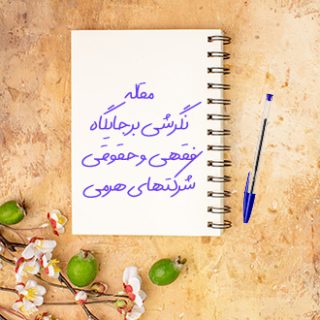 مقاله
نگرشی بر جایگاه
فقهی و حقوقی
شرکتهای هرمی